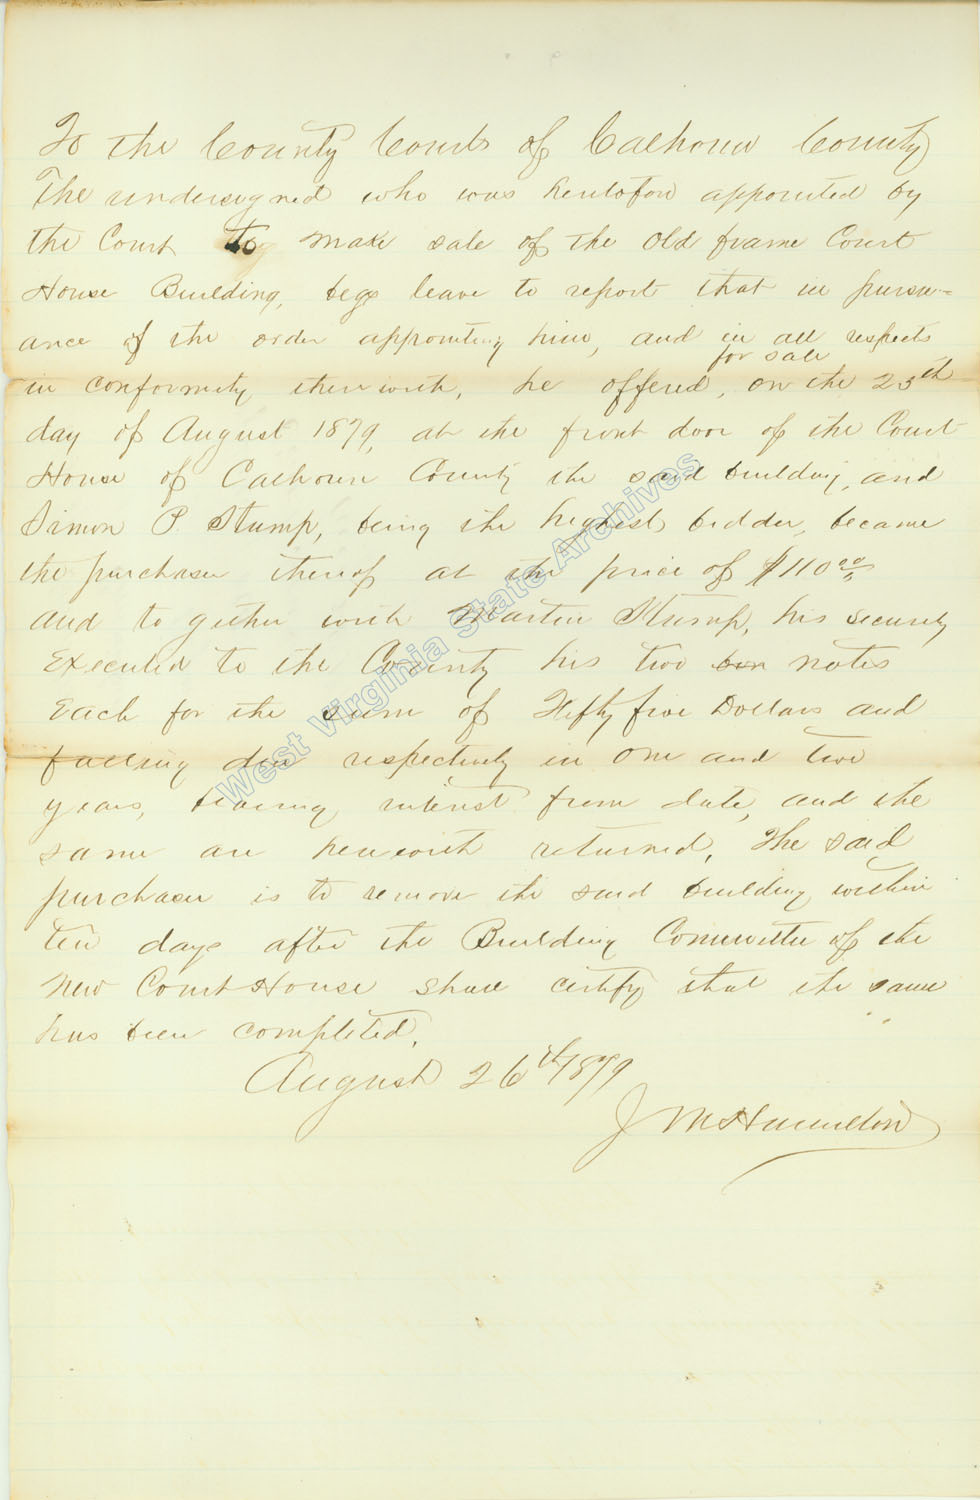 To the County Court of Calhoun County
The undersigned who was heretofore appointed by
the Court to make sale of the old frame Court
House Building, begs leave to report that in pursu=
ance of the order appointing him, and in all respects
for sale
in conformity therewith, he offered, on the 25th
day of August 1879, at the front door of the Court
House of Calhoun County the said building, and
Simon P. Stump, being the highest bidder, became
the purchaser thereof at the price of $110.00
and to gether with Martin Stump, his security
Executed to the County his two bon notes
Each for the sum of Fifty five Dollars and
falling due respectively in one and two
years, bearing interest from date, and the
same are herewith returned. The said
purchaser is to remove the said building within
ten days after the Building Committee of the
New Court House shall certify that the same
has been completed.
August 26th 1879
J M Hamilton
West Virginia State Archives